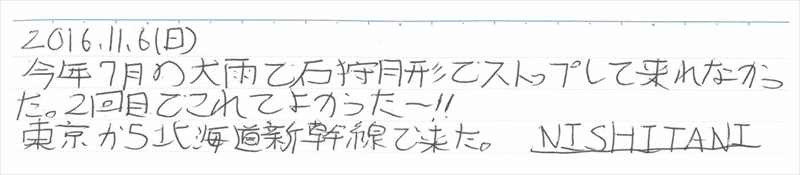 2016.11.6(日)
今年7月の大雨で石狩月形でストップして来れなかっ
た。2回目でこれてよかった〜!!
東京から北海道新幹線で来た。 NISHITANI